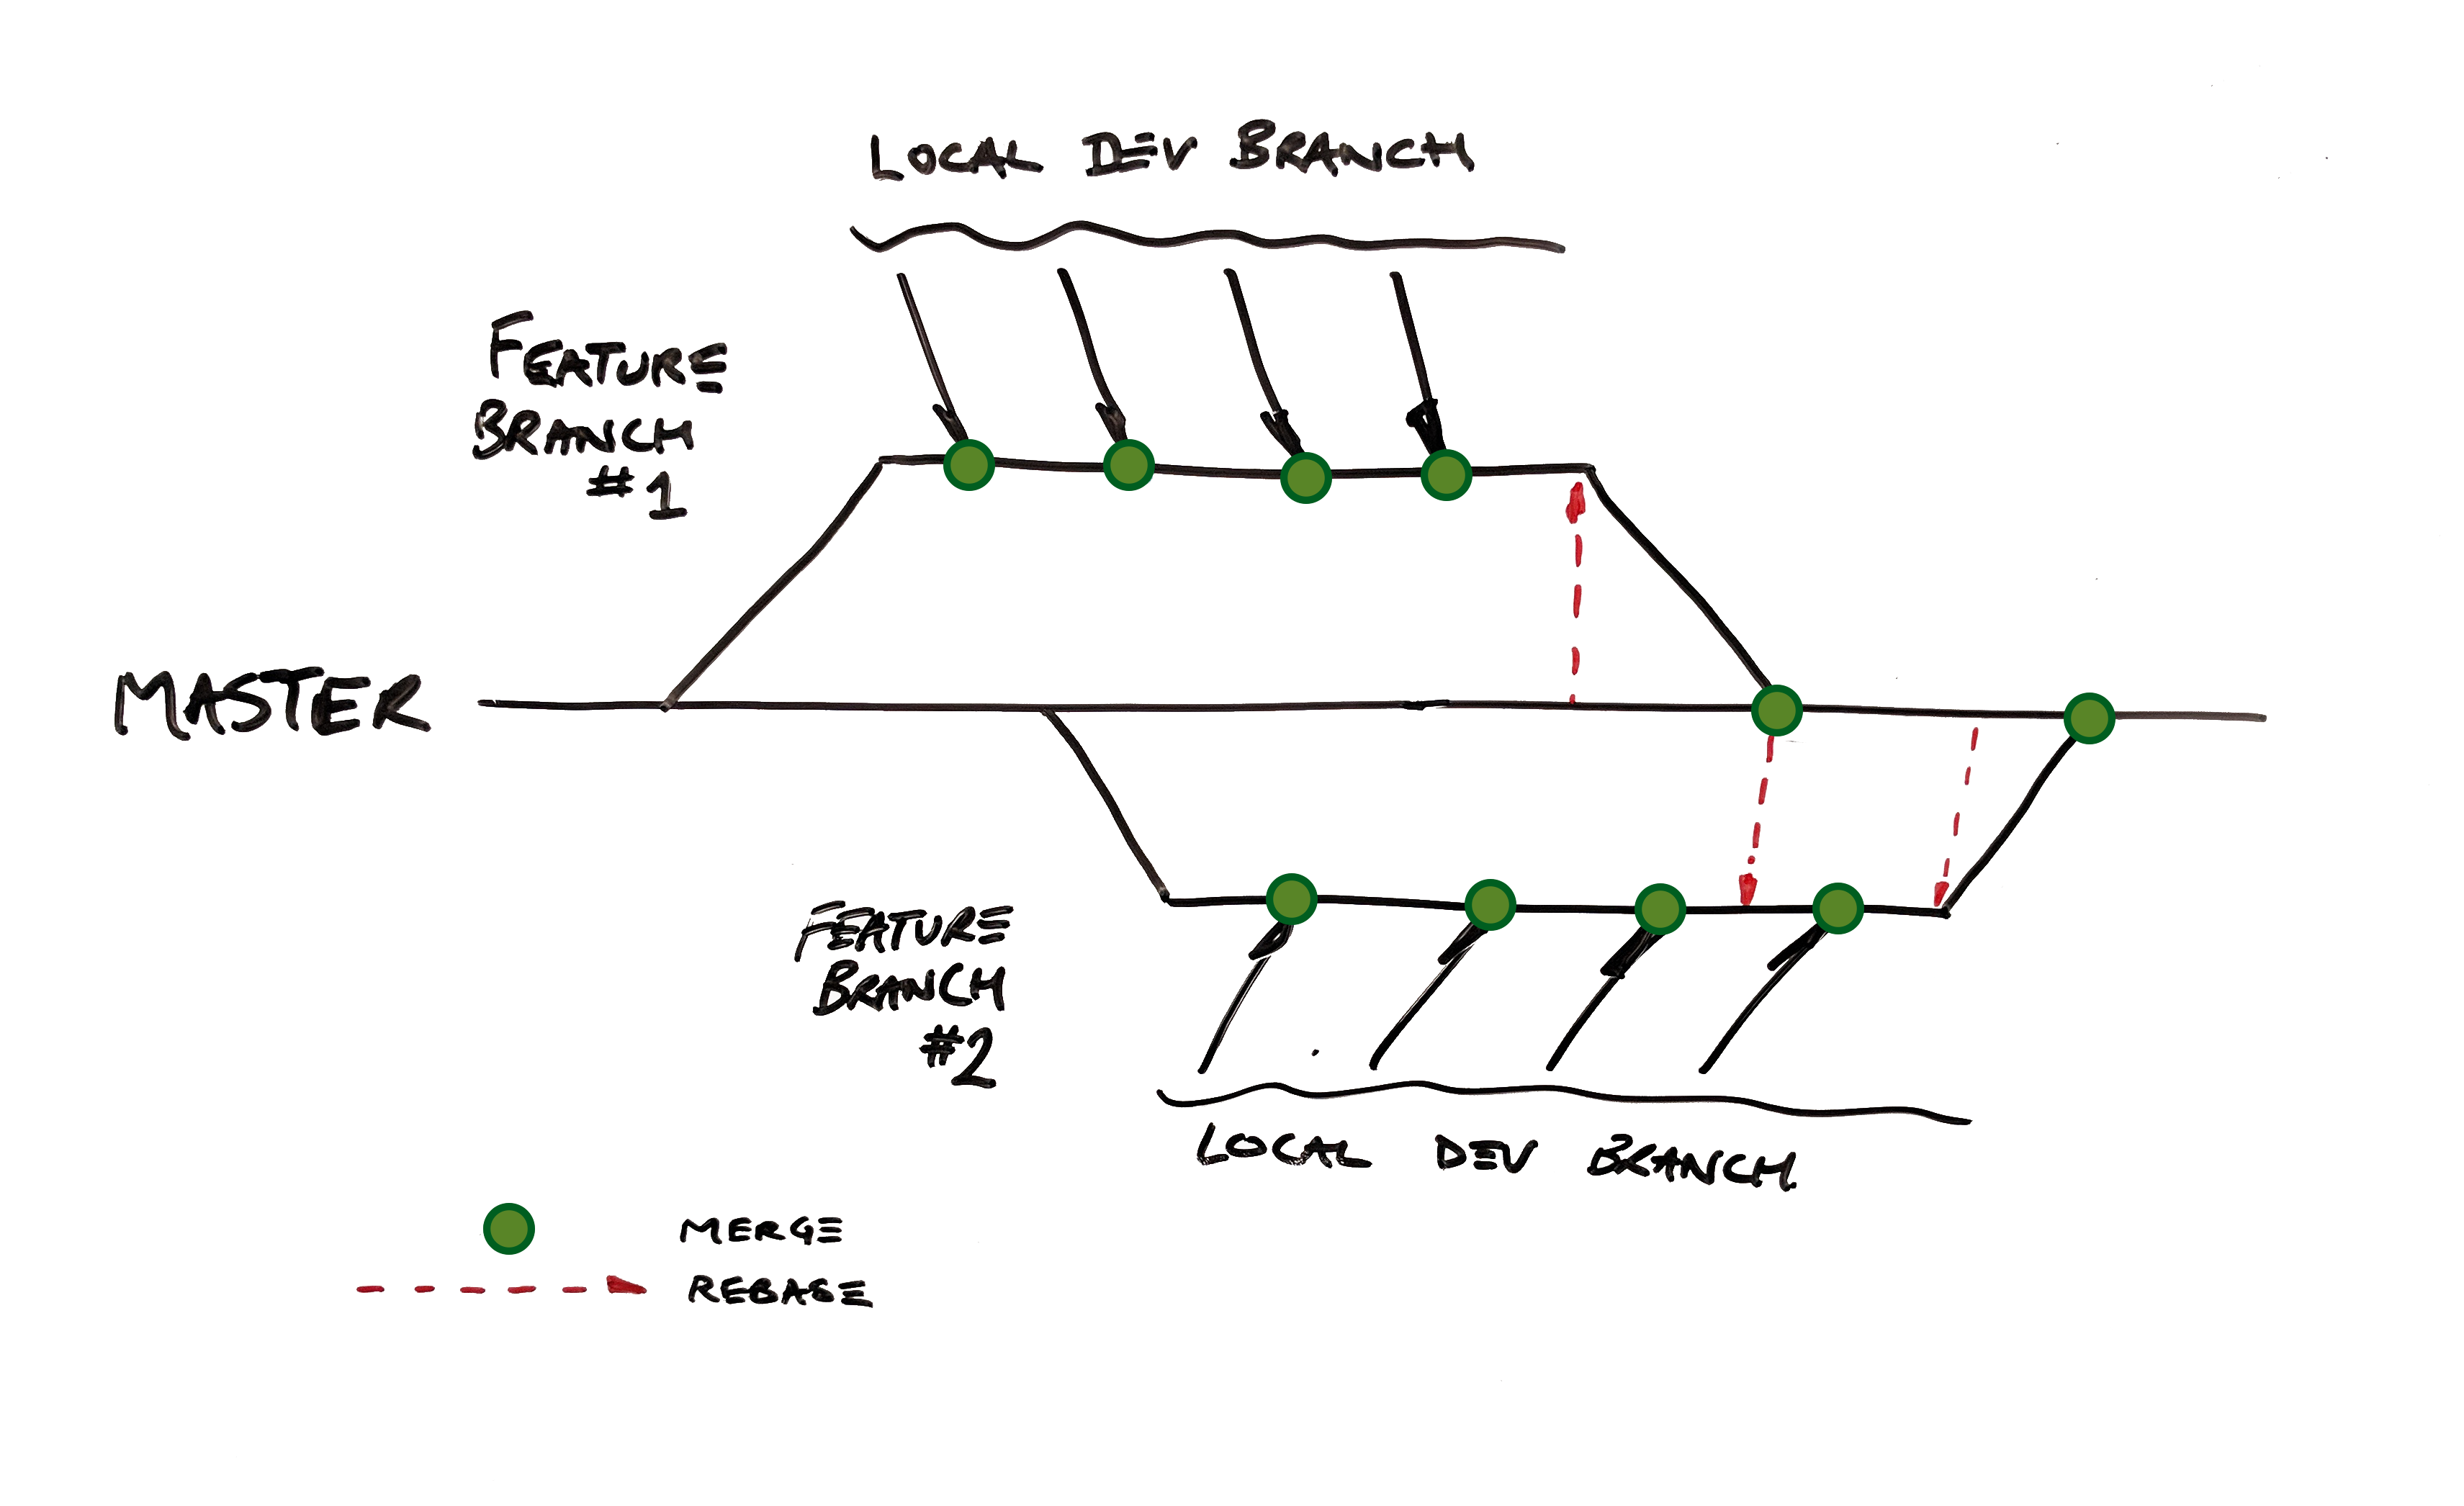 LOCAL DEV BRANCH
FEATURE
BRANCH
#1
MASTER
FEATURE
BRANCH
#2
LOCAL DEV BRANCH
MERGE
REBASE